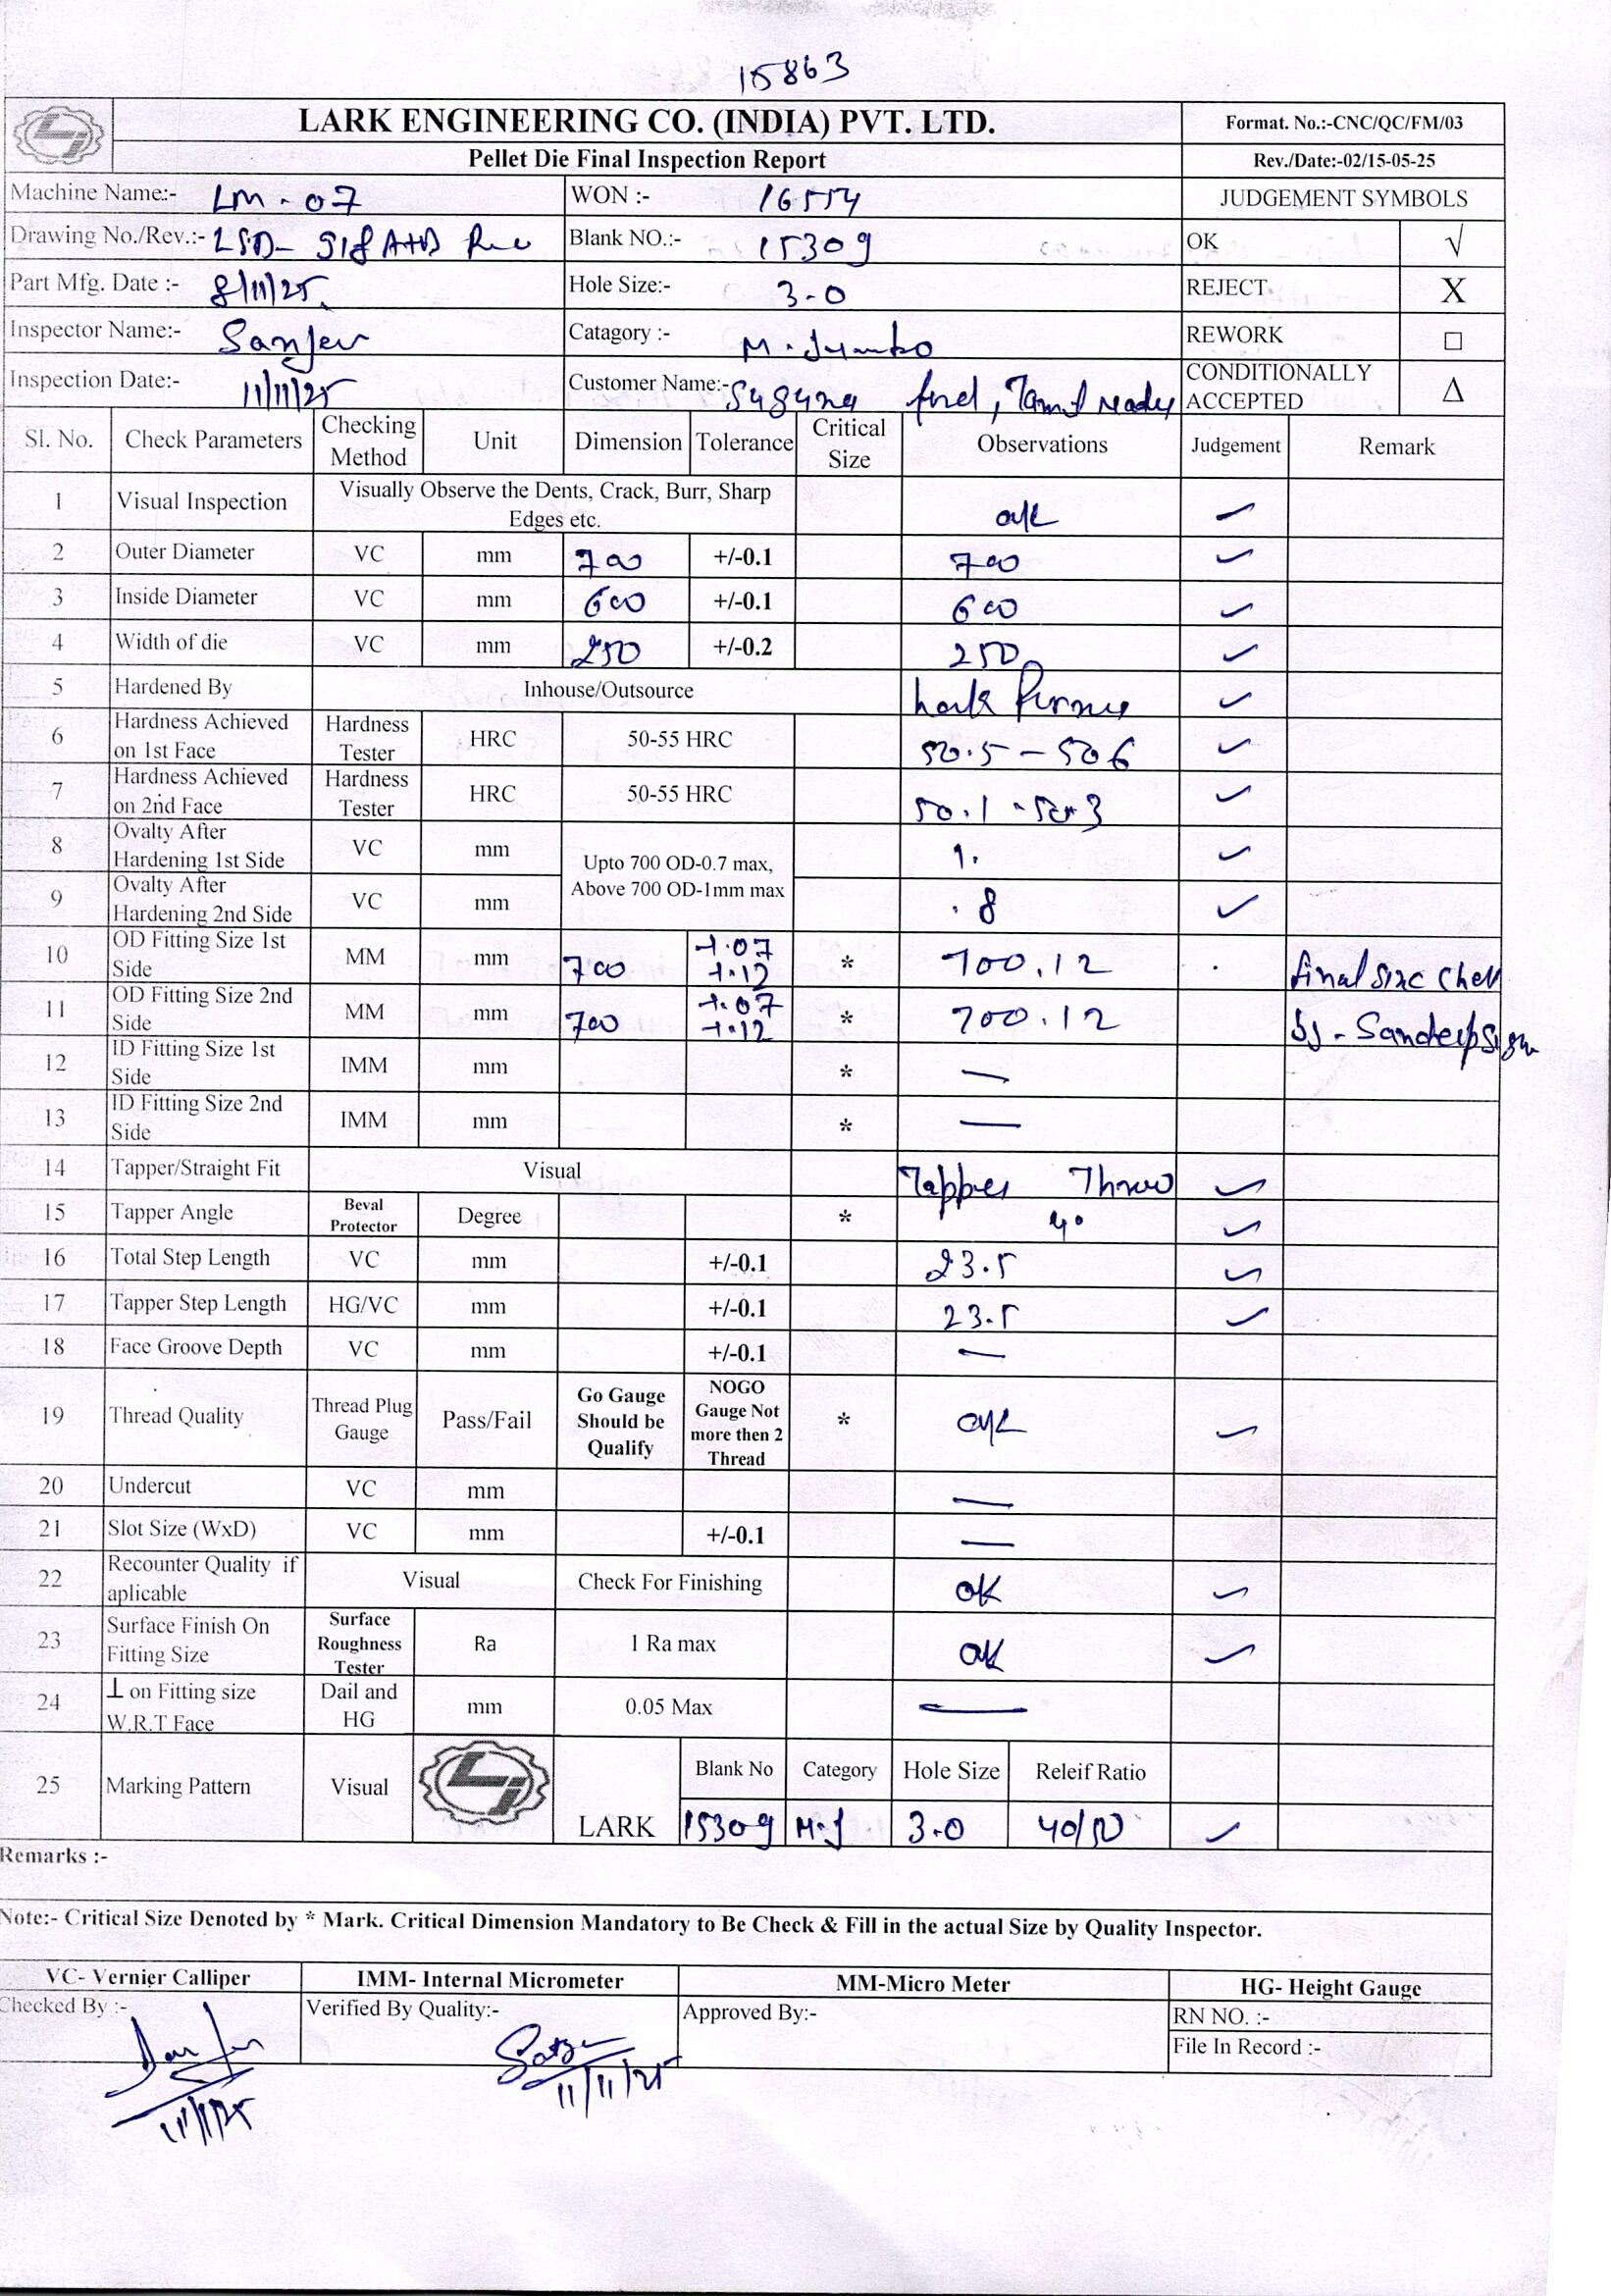 15863
LARK ENGINEERING CO. (INDIA) PVT. LTD. Format. No.:-CNC/QC/FM/03
Pellet Die Final Inspection Report Rev./Date:-02/15-05-25
Machine Name:- LM-07 WON :- 16554 JUDGEMENT SYMBOLS
Drawing No./Rev.:- Blank NO.:- 15309 OK √
Part Mfg. Date :- 8/11/25 Hole Size:- 3-0 REJECT X
Inspector Name:- Sanjeev Catagory :- M. Jumbo REWORK □
Inspection Date:- 11/11/25 Customer Name:- CONDITIONALLY ACCEPTED Δ
Sl. No. Check Parameters Checking Method Unit Dimension Tolerance Critical Size Observations Judgement Remark
1 Visual Inspection Visually Observe the Dents, Crack, Burr, Sharp Edges etc. ok ✓
2 Outer Diameter VC mm 700 +/-0.1 700 ✓
3 Inside Diameter VC mm 600 +/-0.1 600 ✓
4 Width of die VC mm 250 +/-0.2 250 ✓
5 Hardened By Inhouse/Outsource Lark ✓
6 Hardness Achieved on 1st Face Hardness Tester HRC 50-55 HRC 50.5 - 50 6 ✓
7 Hardness Achieved on 2nd Face Hardness Tester HRC 50-55 HRC 50.1 - 50.3 ✓
8 Ovalty After Hardening 1st Side VC mm Upto 700 OD-0.7 max, Above 700 OD-1mm max 1. ✓
9 Ovalty After Hardening 2nd Side VC mm .8 ✓
10 OD Fitting Size 1st Side MM mm 700 +.07 +.12 * 700.12 final size Chek
11 OD Fitting Size 2nd Side MM mm 700 +.07 +.12 * 700.12 by - Sandeep
12 ID Fitting Size 1st Side IMM mm * —
13 ID Fitting Size 2nd Side IMM mm * —
14 Tapper/Straight Fit Visual Tapper ✓
15 Tapper Angle Beval Protector Degree * 4° ✓
16 Total Step Length VC mm +/-0.1 23.5 ✓
17 Tapper Step Length HG/VC mm +/-0.1 23.5 ✓
18 Face Groove Depth VC mm +/-0.1 —
19 Thread Quality Thread Plug Gauge Pass/Fail Go Gauge Should be Qualify NOGO Gauge Not more then 2 Thread * ok ✓
20 Undercut VC mm —
21 Slot Size (WxD) VC mm +/-0.1 —
22 Recounter Quality if aplicable Visual Check For Finishing ok ✓
23 Surface Finish On Fitting Size Surface Roughness Tester Ra 1 Ra max ok ✓
24 ⊥ on Fitting size W.R.T Face Dail and HG mm 0.05 Max —
25 Marking Pattern Visual LARK Blank No Category Hole Size Releif Ratio
15309 M.J 3-0 40/50 ✓
Remarks :-
Note:- Critical Size Denoted by * Mark. Critical Dimension Mandatory to Be Check & Fill in the actual Size by Quality Inspector.
VC- Vernier Calliper IMM- Internal Micrometer MM-Micro Meter HG- Height Gauge
Checked By :- Verified By Quality:- Approved By:- RN NO. :-
File In Record :-
11/11/25 11/11/25